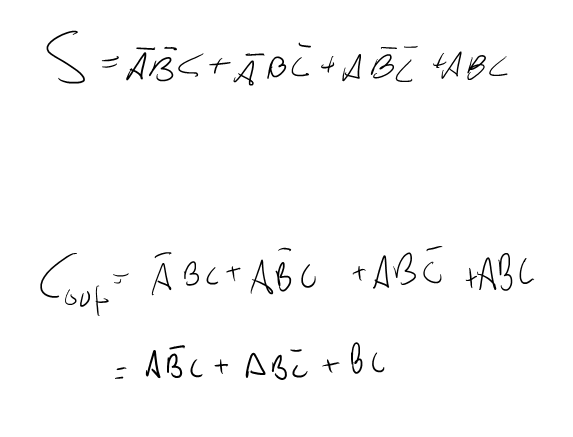 S = A̅B̅C + A̅BC̅ + AB̅C̅ + ABC
Cout = A̅BC + AB̅C + ABC̅ + ABC
= AB̅C + ABC̅ + BC